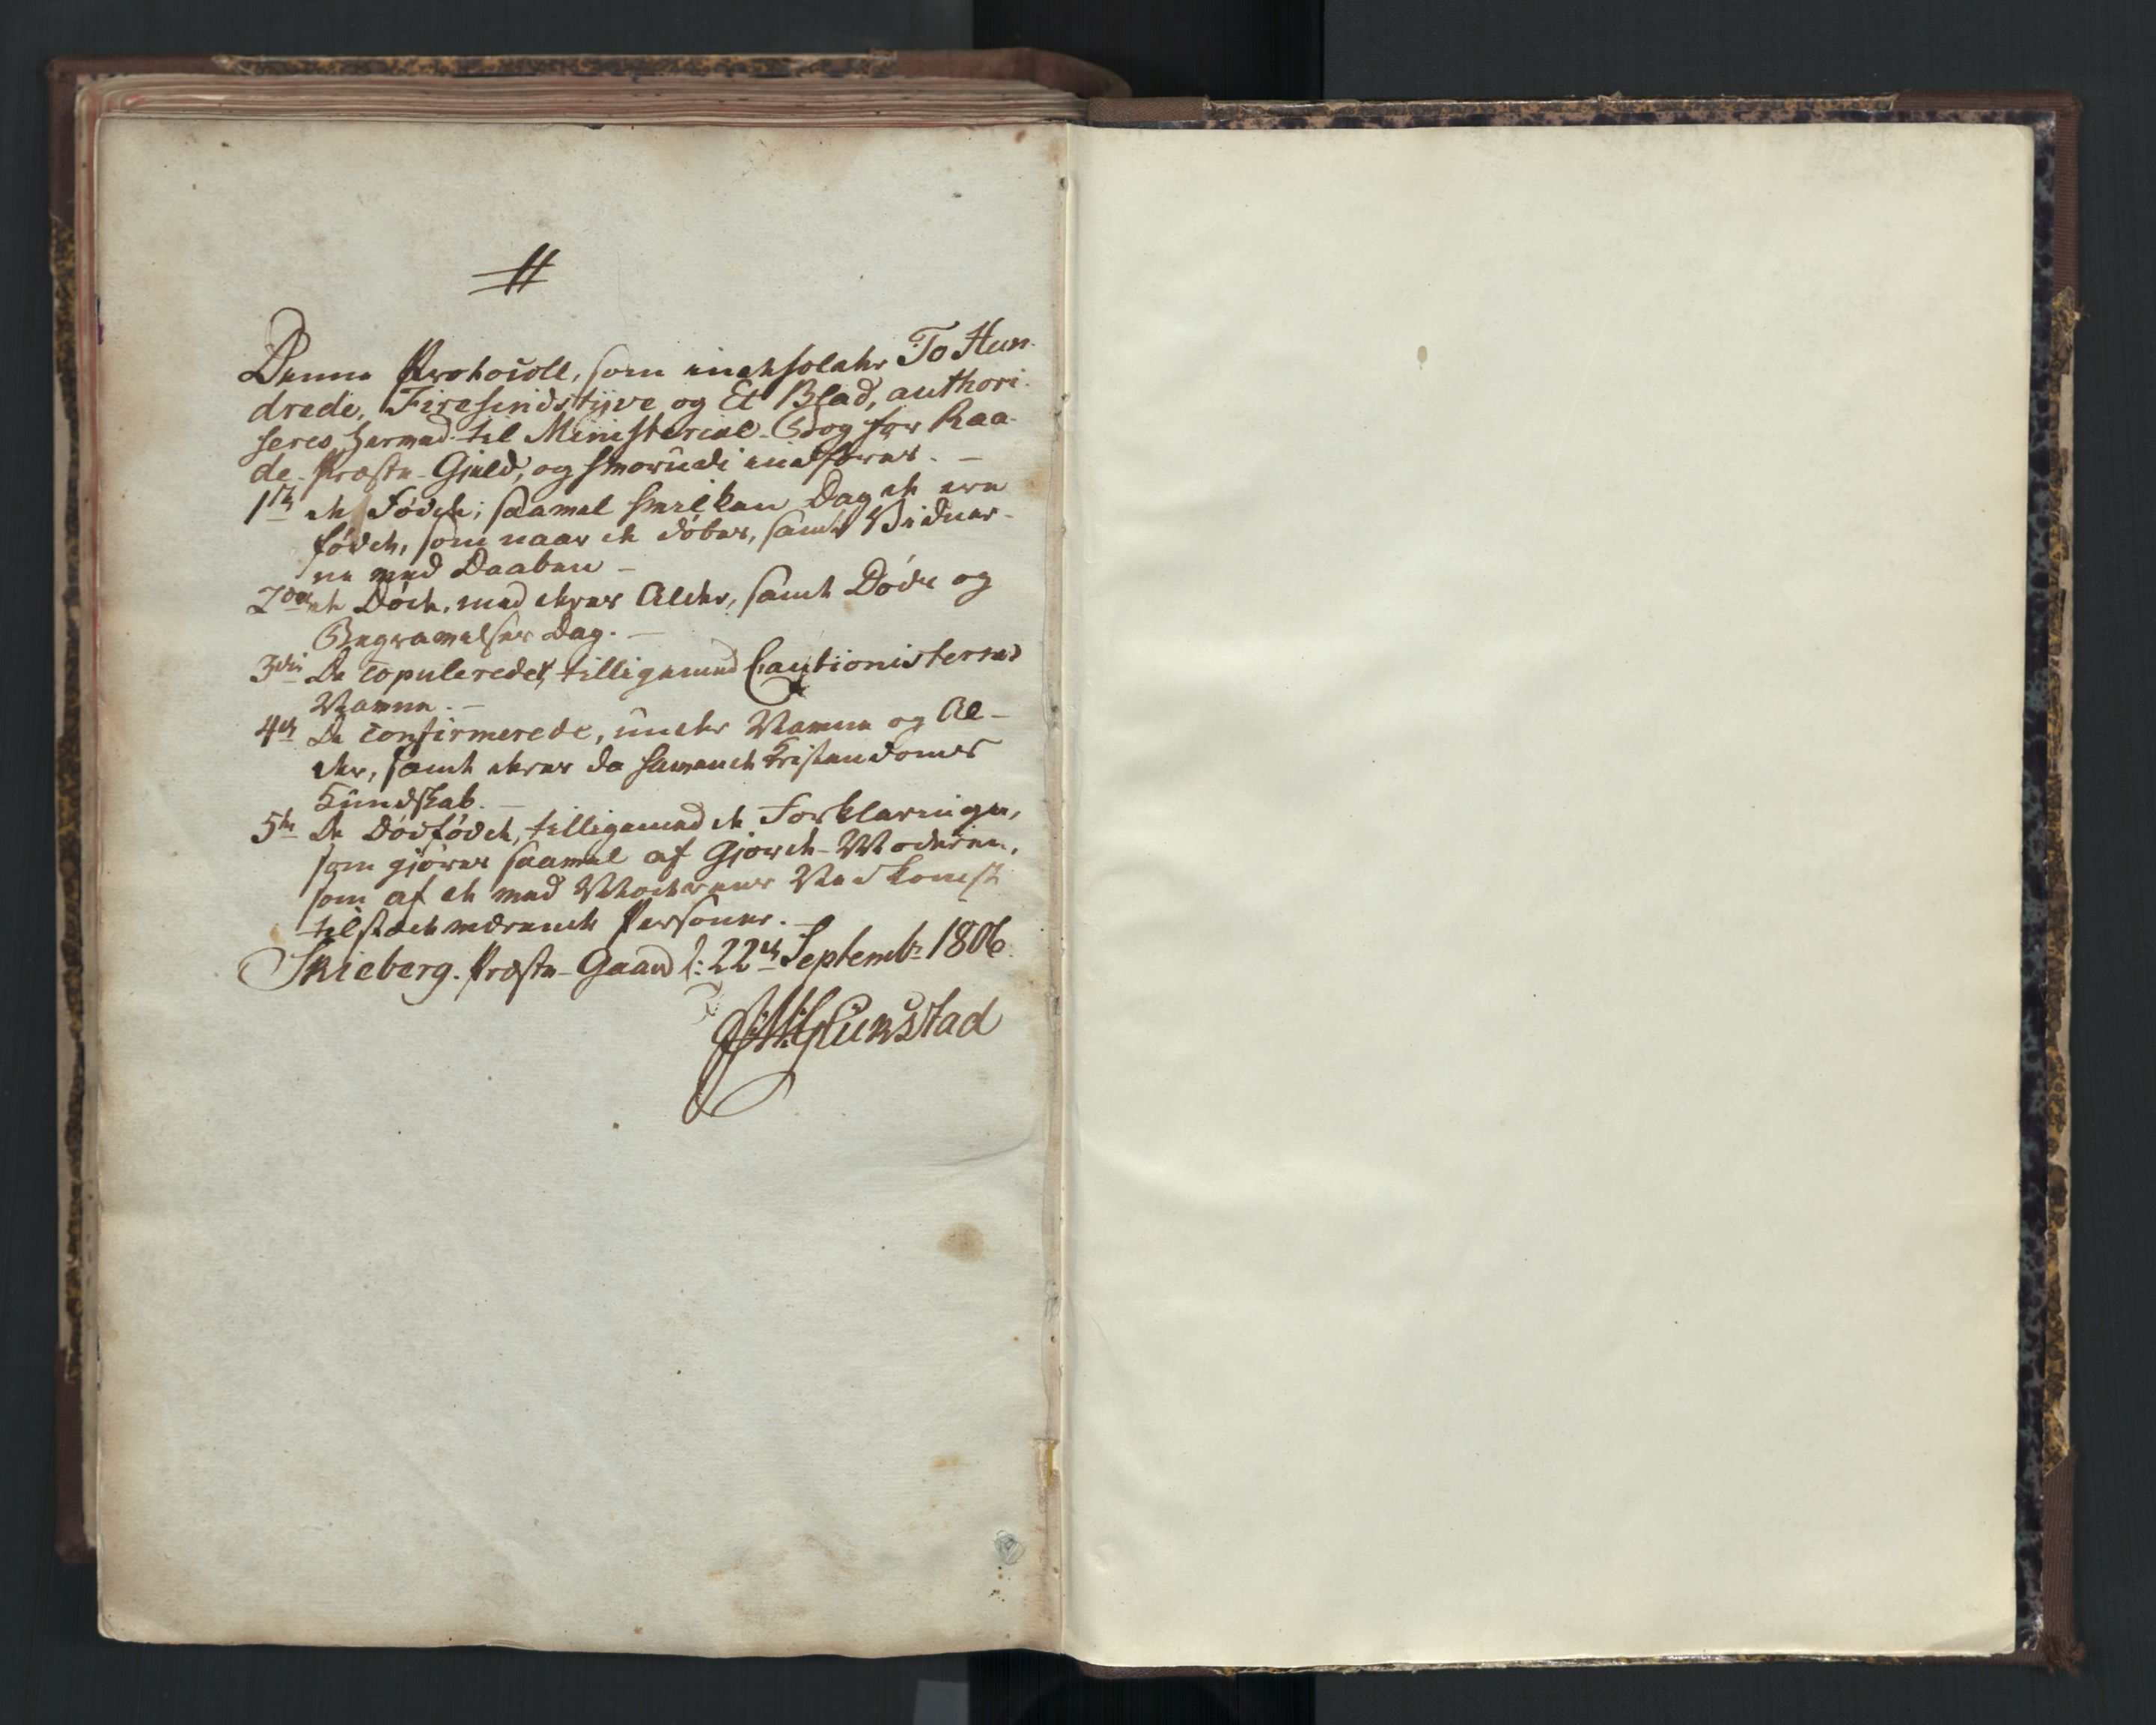 #
Denne Protocoll, som indeholder To Hun-
drede, Firesindstyve og Et Blad, authori-
seres hermed til Ministerial-Bog for Raa-
de-Præste-Gjeld, og hvorudi indføres. —
1te de Fødde; saavel hvilken Dag de ere
fødde, som naar de døbes, samt Vidner-
ne ved Daaben —
2det de Døde, med deres Alder, samt Døds og
Begravelses Dag. —
3die De copulerede, tilligemed Cautionisternes
Navne. —
4de De confirmerede, under Navne og Al-
der, samt deres da havende Kristendoms
Kundskab. —
5te De Dødfødde, tilligemed de Forklaringer,
som gjøres saavel af Gjorde-Moderen,
som af de ved Moderens Nedkomst
tilstædeværende Personer. —
Skieberg. Præste-Gaard d: 22de Septembr 1806.